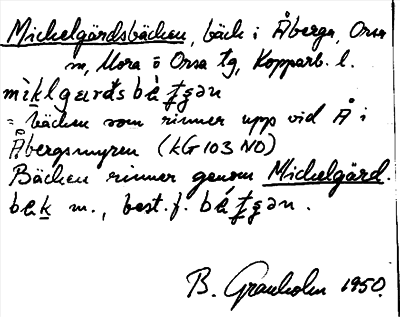 Mickelgårdsbäcken, bäck i Åberga, Orsa
m, Mora o Orsa tg, Kopparb. l.
= bäcken som rinner upp vid Å i
Åbergsmyren (kG 103 NO)
Bäcken rinner genom Mickelgård.
m., best. f.
B. Granholm 1950.